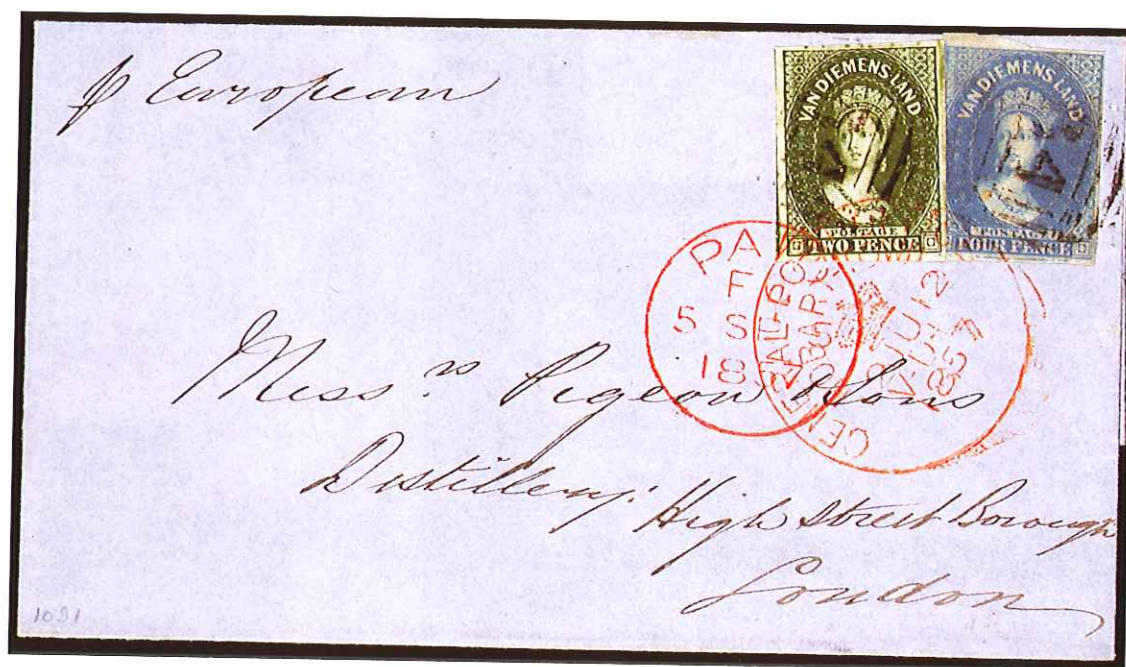 p European
VAN DIEMENS LAND
POSTAGE
TWO PENCE
VAN DIEMENS LAND
POSTAGE
FOUR PENCE
PA
F
5 S
18
GENERAL PO
HOBART
JU 12
1857
Mess.rs Pigeon & Sons
Distillery. High Street Borough
London
1091